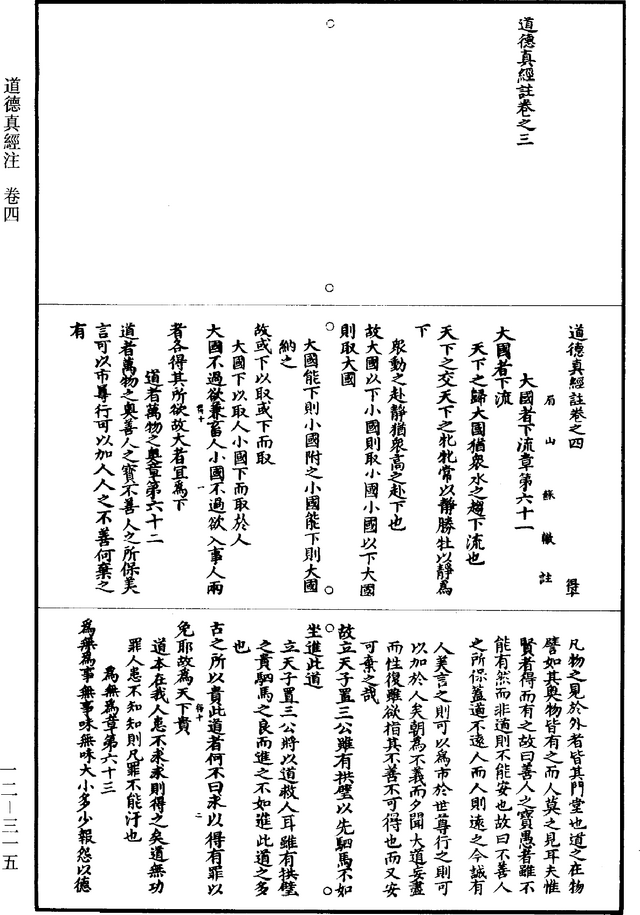 道德真經註卷之三
道德真經註卷之四
得十
眉山蘇轍註
大國者下流章第六十一
大國者下流
天下之歸大國猶衆水之趨下流也
天下之交天下之牝牝常以靜勝牡以靜爲
下
衆動之赴靜猶衆高之赴下也
故大國以下小國則取小國小國以下大國
則取大國
大國能下則小國附之小國能下則大國
納之
故或下以取或下而取
大國下以取人小國下而取於人
大國不過欲兼畜人小國不過欲入事人兩
得十
一
者各得其所欲故大者宜爲下
道者萬物之奧章第六十二
道者萬物之奧善人之寶不善人之所保美
言可以市尊行可以加人人之不善何棄之
有
凡物之見於外者皆其門堂也道之在物
譬如其奧物皆有之而人莫之見耳夫惟
賢者得而有之故曰善人之寶愚者雖不
能有然而非道則不能安也故曰不善人
之所保蓋道不遠人而人則遠之今誠有
人美言之則可以爲市於世尊行之則可
以加於人矣朝爲不義而夕聞大道妄盡
而性復雖欲指其不善不可得也而又安
可棄之哉
故立天子置三公雖有拱璧以先駟馬不如
坐進此道
立天子置三公將以道救人耳雖有拱璧
之貴駟馬之良而進之不如進此道之多
也
古之所以貴此道者何不曰求以得有罪以
得十
二
免耶故爲天下貴
道本在我人患不求求則得之矣道無功
罪人患不知知則凡罪不能汙也
爲無爲章第六十三
爲無爲事無事味無味大小多少報怨以德
道德真經注 卷四
一二—三一五